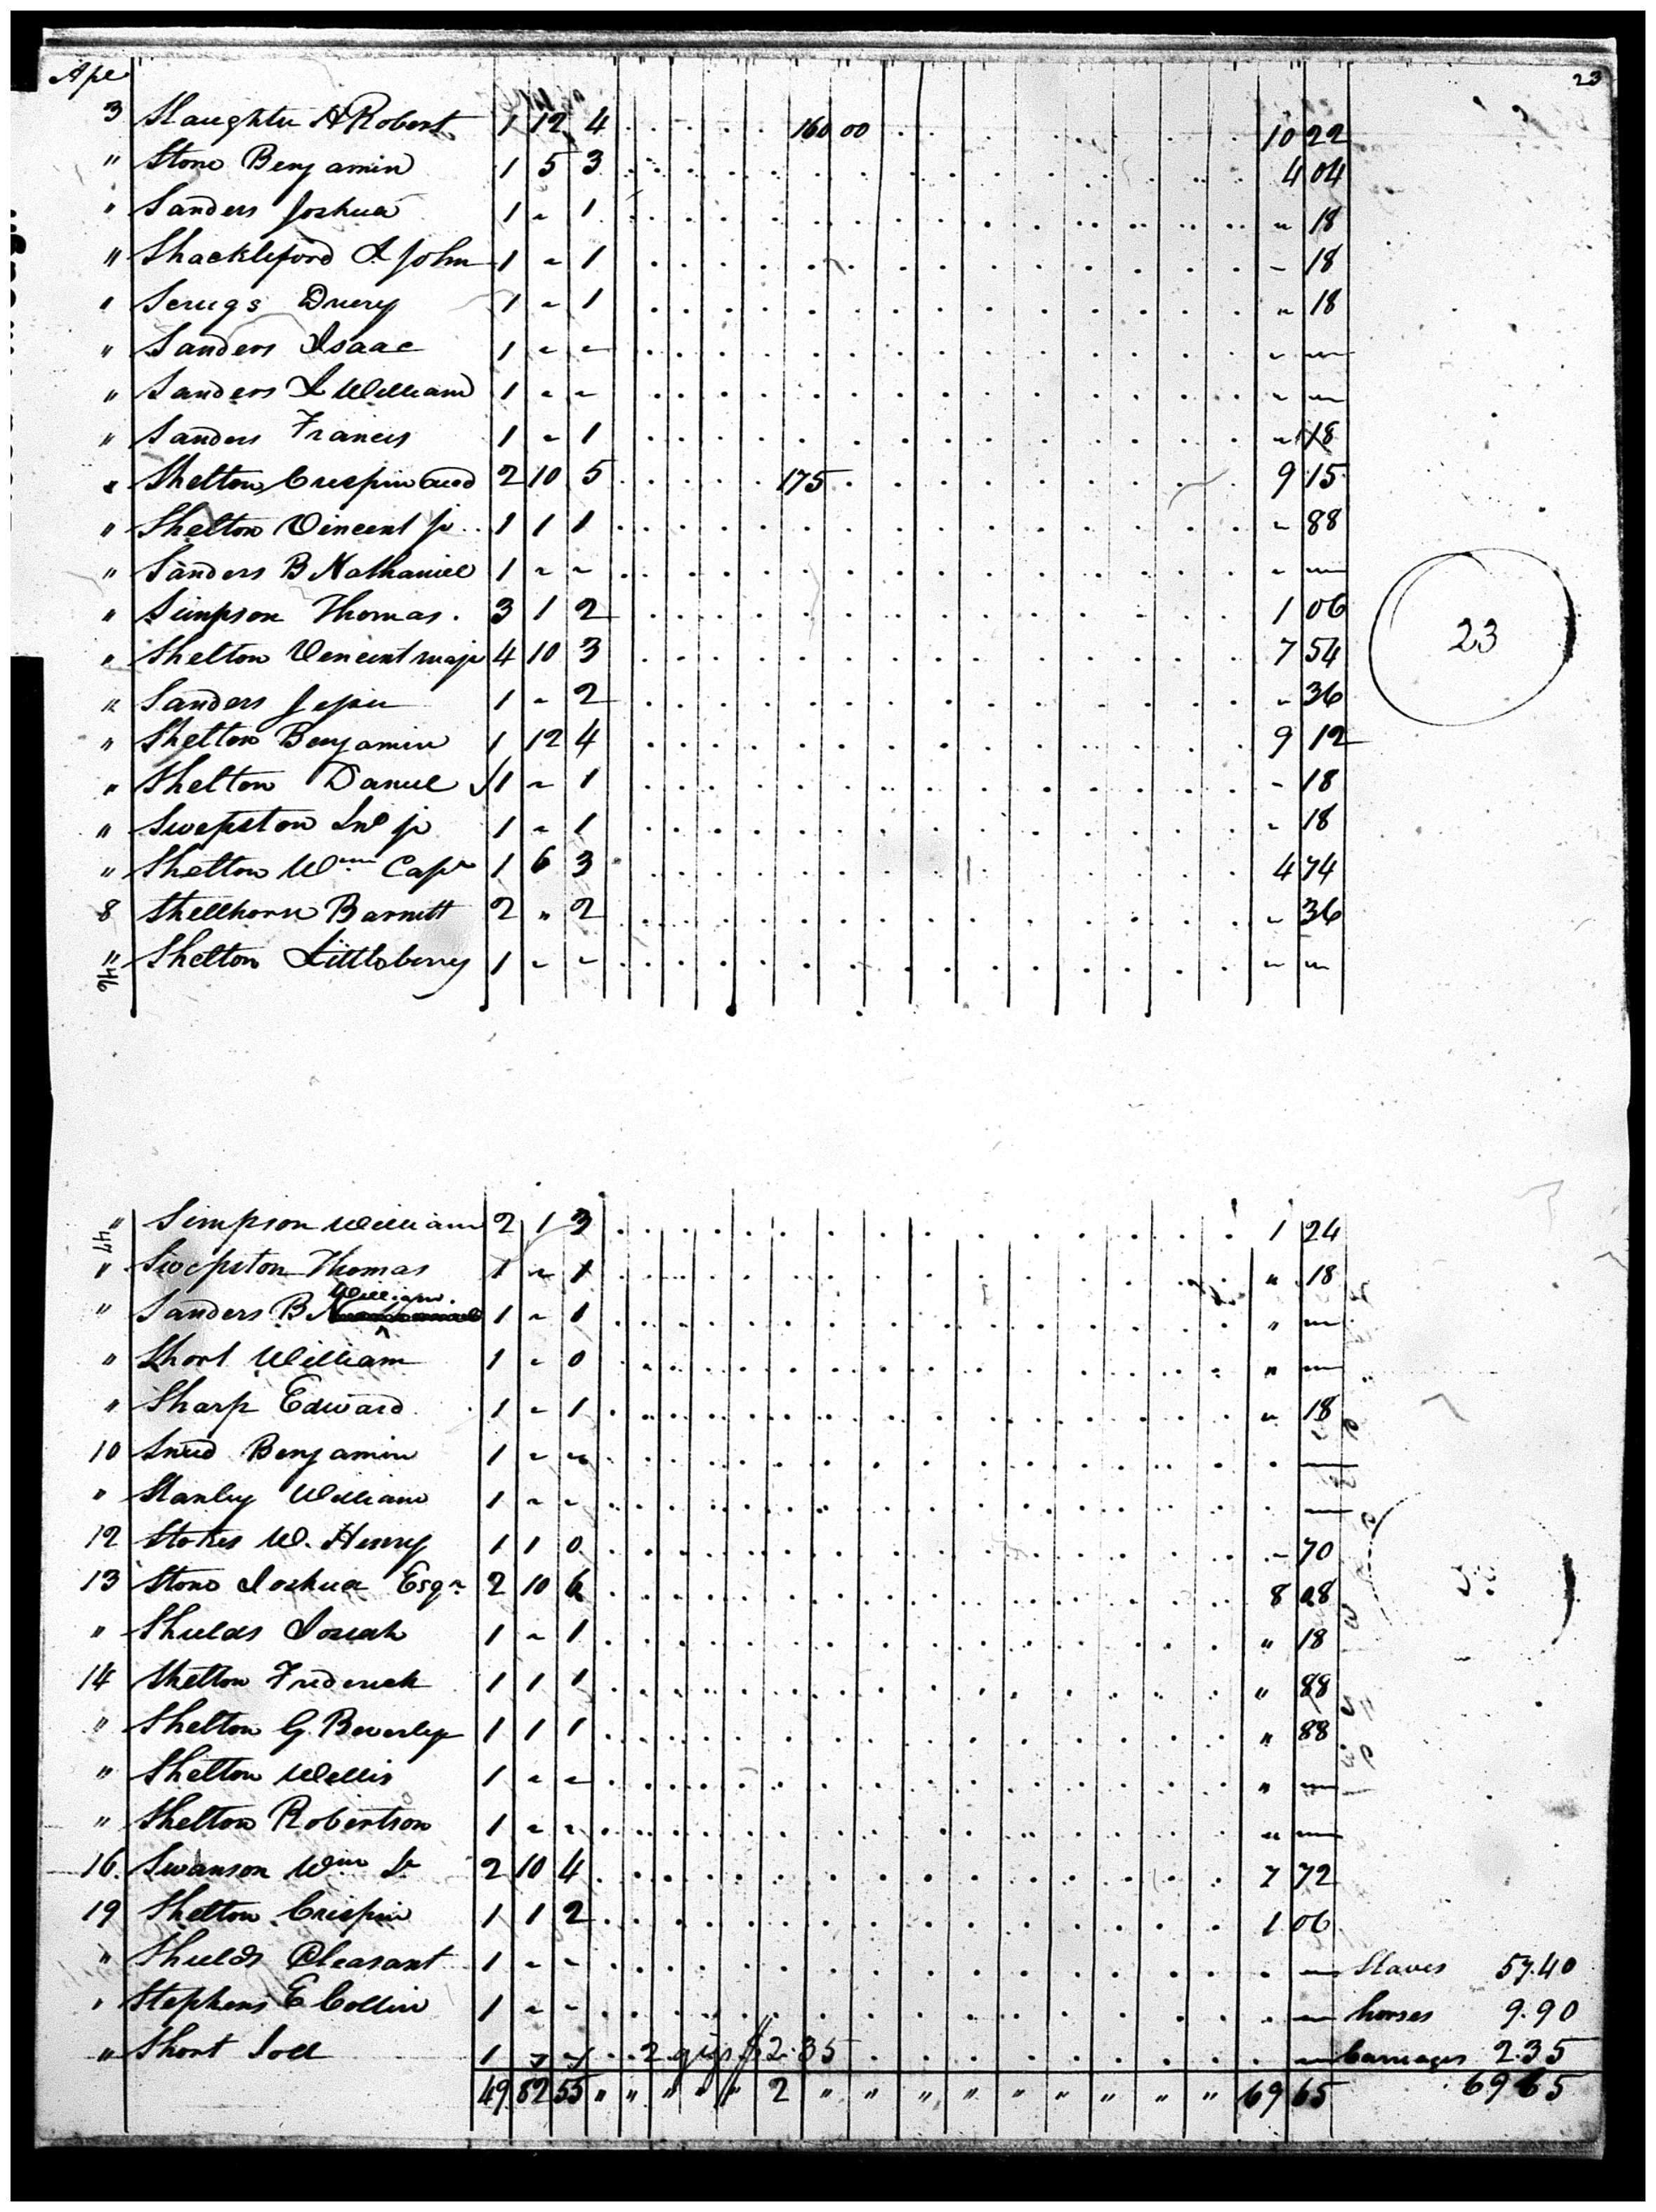 Ape 23
3 Slaughter A Robert 1 12 4 160 00 10 22
" Stone Benjamin 1 5 3 4 04
" Sanders Joshua 1 - 1 " 18
" Shackleford I. John 1 - 1 - 18
" Scrugs Drury 1 - 1 " 18
" Sanders Isaac 1 - - - -
" Sanders I William 1 - - - -
" Sanders Francis 1 - 1 " 18
" Shelton Crispin 2 10 5 175 9 15
" Shelton Vincent jr 1 1 1 - 88
" Sanders B Nathaniel 1 - - - -
" Simpson Thomas. 3 1 2 1 06
" Shelton Vencent majr 4 10 3 7 54
" Sanders Jesse 1 - 2 - 36
" Shelton Benjamin 1 12 4 9 12
" Shelton Daniel 1 - 1 - 18
" Swepston Jno jr 1 - 1 - 18
" Shelton Wm Capt 1 6 3 4 74
8 Shellhorn Barnett 2 " 2 - 36
" Shelton Littleberry 1 - - - -
46
23
47
" Simpson William 2 1 3 1 24
" Swepston Thomas 1 - 1 " 18
" Sanders B William 1 - 1 " -
" Short William 1 - 0 " -
" Sharp Edward 1 - 1 " 18
10 Sneed Benjamin 1 - - . -
" Stanley William 1 - - . -
12 Stokes W. Henry 1 1 0 - 70
13 Stone Joshua Esqr 2 10 6 8 08
" Shields Josiah 1 - 1 " 18
14 Shelton Frederick 1 1 1 " 88
" Shelton G. Beverley 1 1 1 " 88
" Shelton Willis 1 - - " -
" Shelton Robertson 1 - - " -
16 Swanson Wm Sr 2 10 4 7 72
19 Shelton Crispin 1 1 2 1 06
" Shields Pleasant 1 - - . - Slaves 57.40
" Stephens E Collin 1 - - . - horses 9.90
" Short Joel 1 - - 2 gigs $2.35 - Carriages 2.35
49 82 55 " " " " " 2 " " " " " " " " " 69 65 69 65